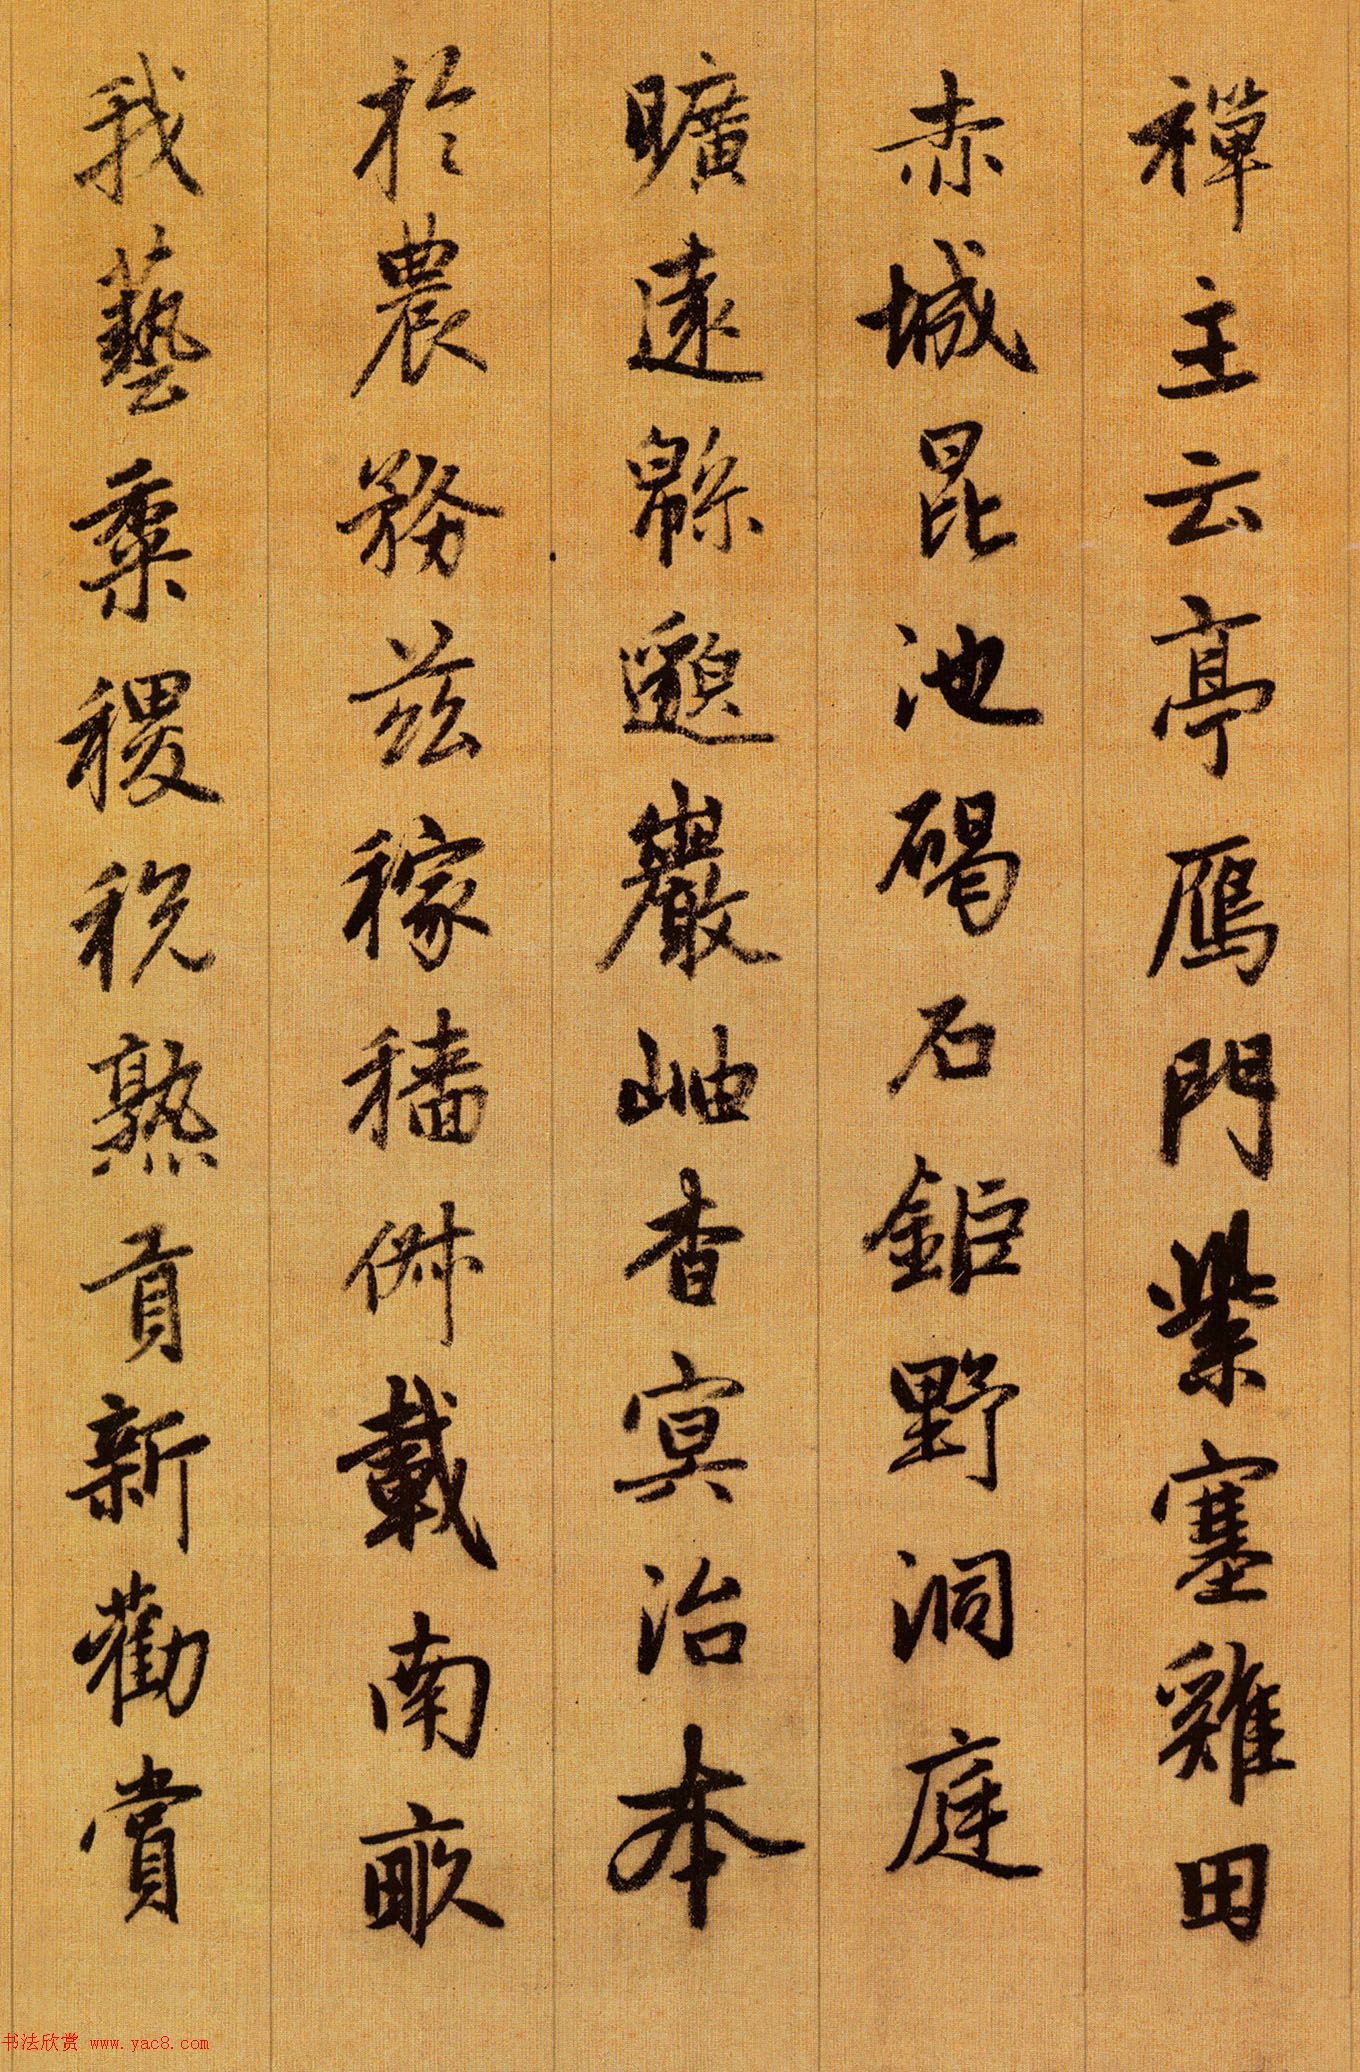 禪主云亭鴈門紫塞雞田
赤城昆池碣石鉅野洞庭
曠遠緜邈巖岫杳寞治本
於農務茲稼穡俶載南畝
我藝黍稷稅熟貢新勸賞
书法欣赏 www.yac8.com